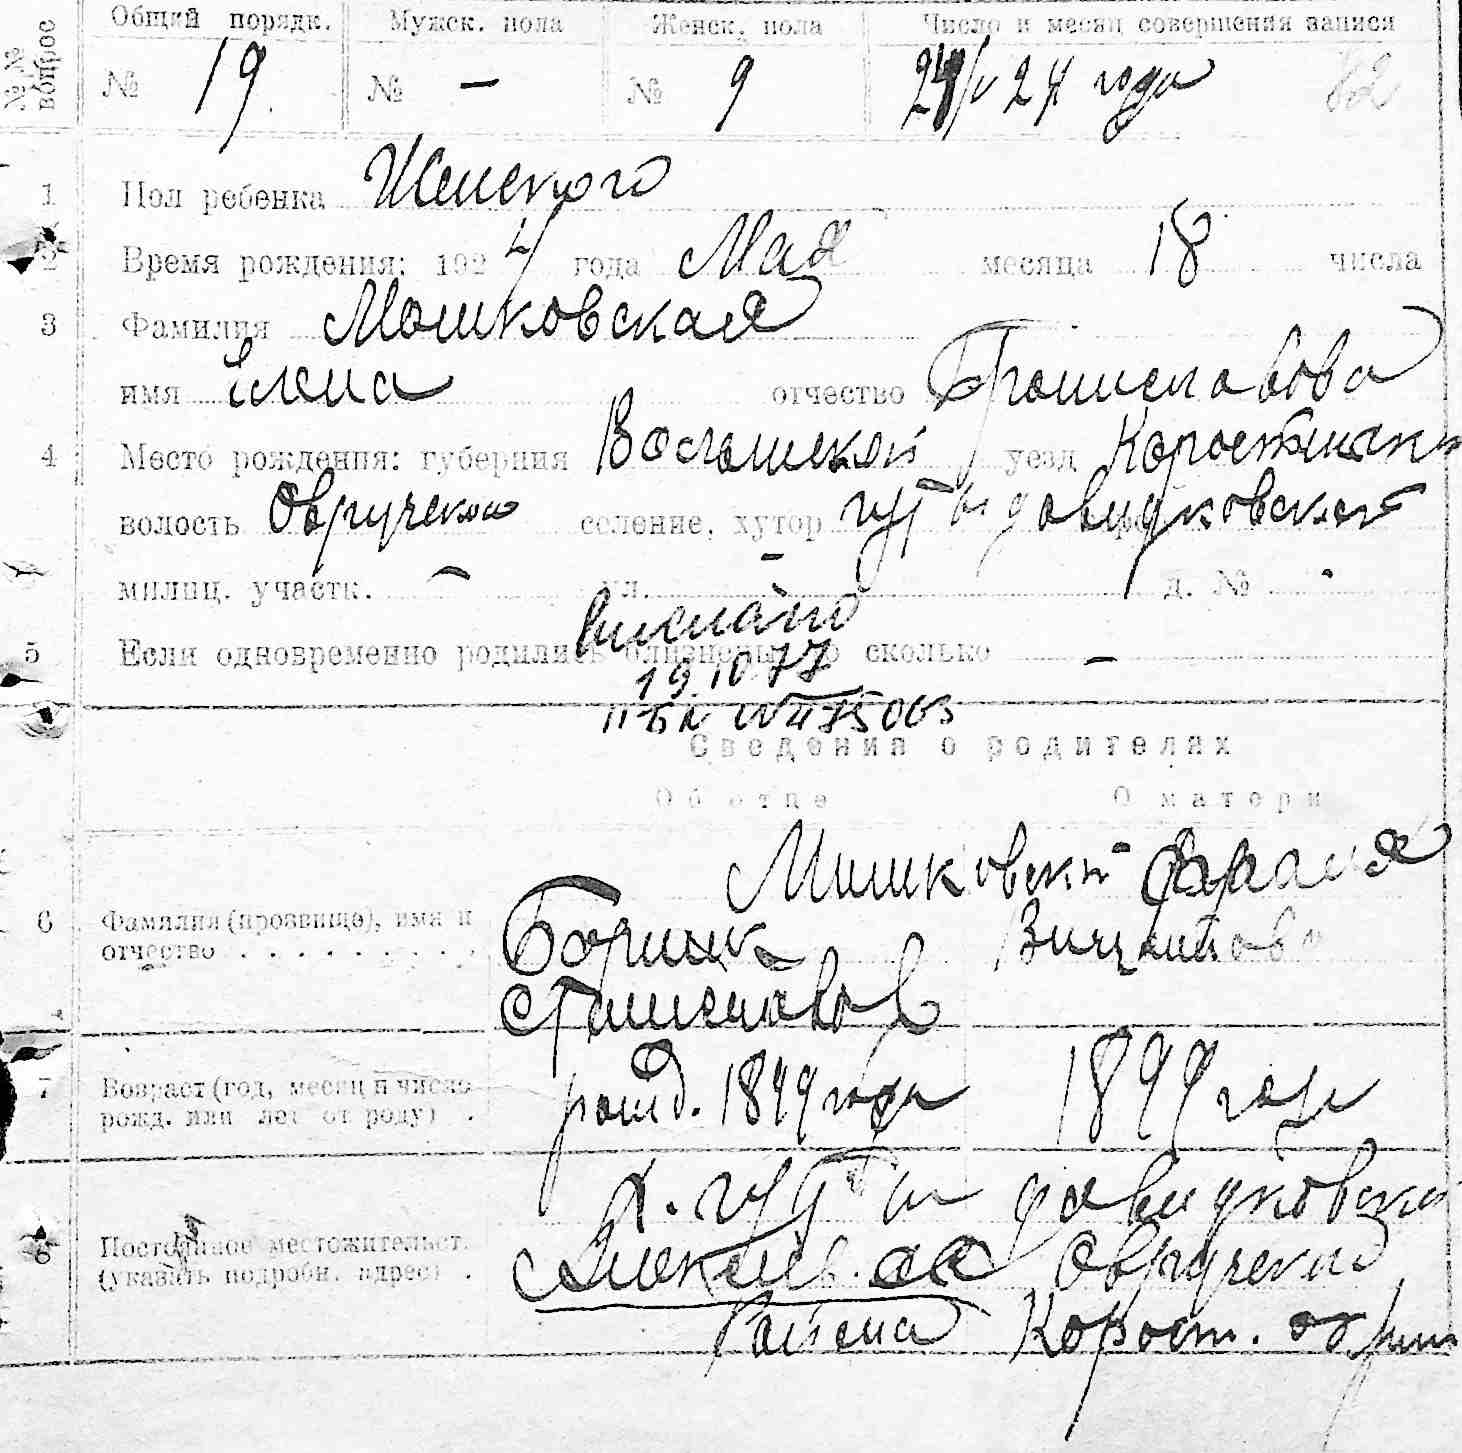 №№ вопрос
Общий порядк. Мужск. пола Женск. пола Число и месяц совершения записи
№ 19. № — № 9 24/V 24 года 82
1 Пол ребенка Женского
2 Время рождения: 1924 года Мая месяца 18 числа
3 Фамилия Мошковская
имя Елена отчество Брониславова
4 Место рождения: губерния Волынской уезд Коростенский
волость Овручского селение, хутор гуты давидковской
милиц. участк. — ул. — д. №
выслано
5 Если одновременно родились близнецы, то сколько —
19.10 77
Сведения о родителях
Об отце О матери
6 Фамилия (прозвище), имя и отчество
Мошковский Франя
Винцентова
Станиславов
7 Возраст (год, месяц и число рожд. или лет от роду) рожд. 1899 года 1899 года
8 Постоянное местожительст. (указать подробн. адрес)
х. гуты давидковской
с Овручского
Района Корост. округа